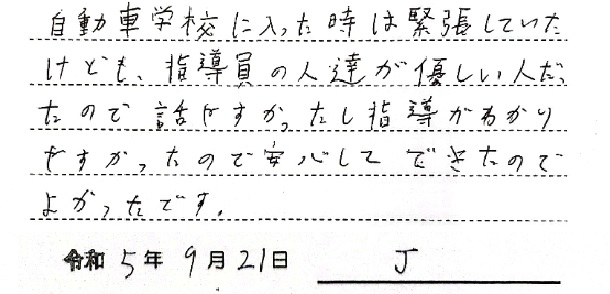 自動車学校に入った時は緊張していた
けども、指導員の人達が優しい人だっ
たので話やすかったし指導がわかり
やすかったので安心してできたので
よかったです。
令和5年9月21日 J